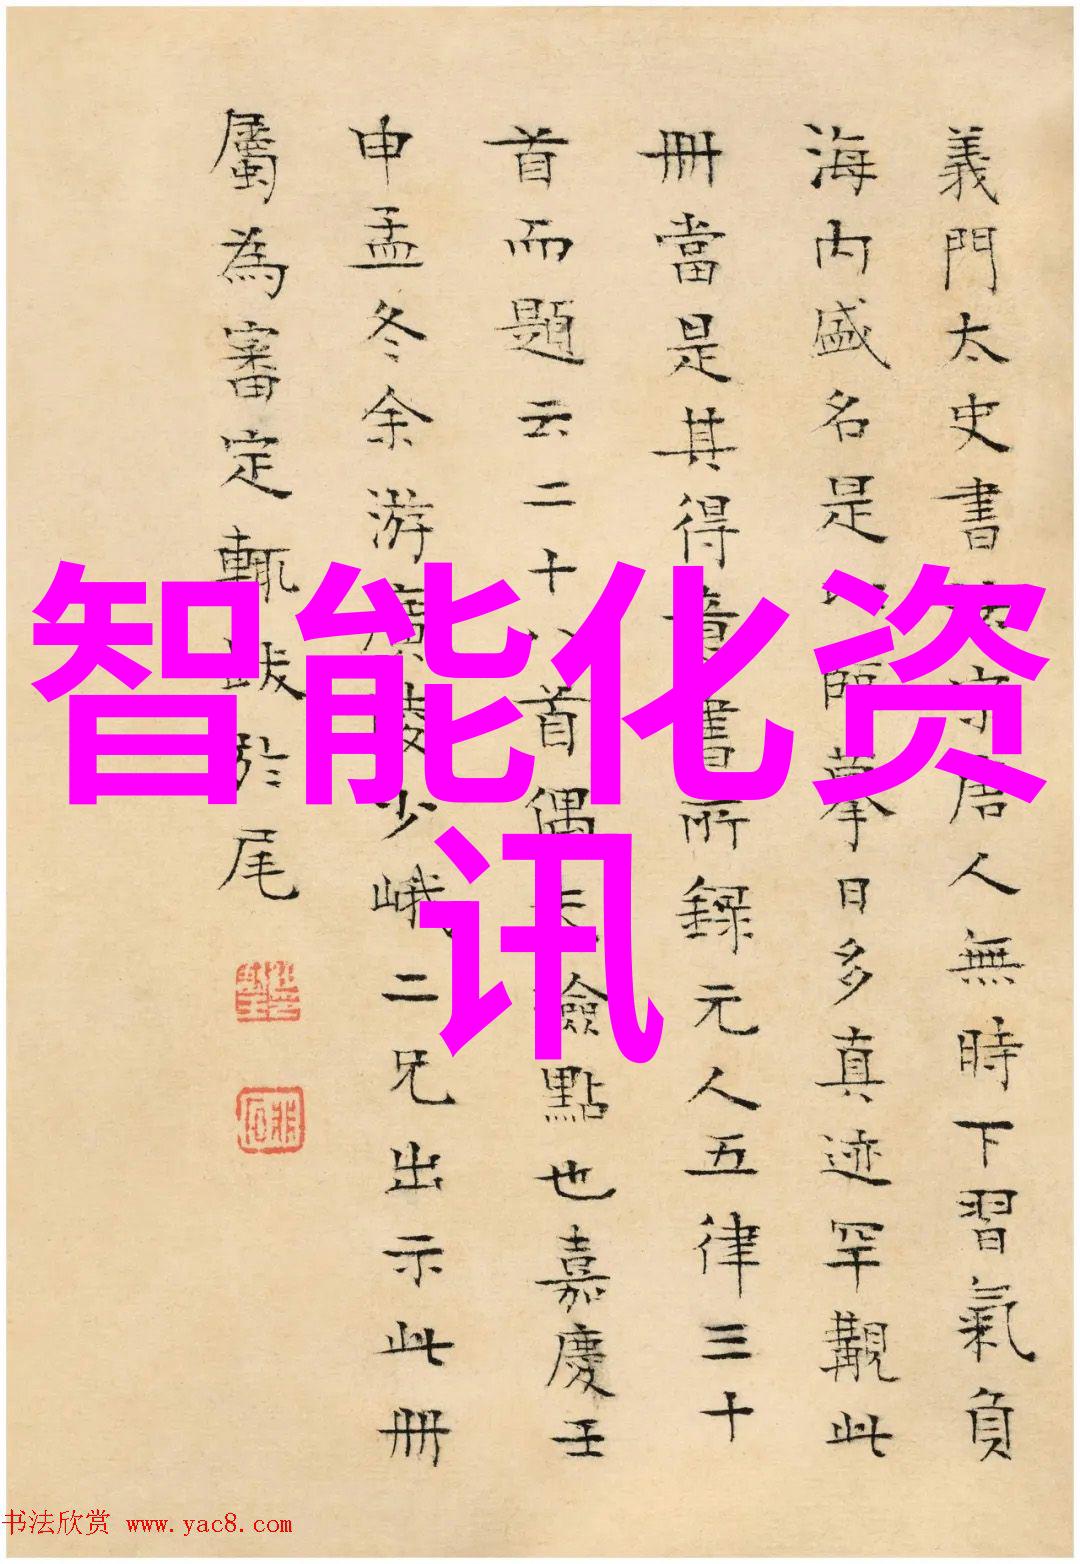 義門太史書
人無時下習氣負
海内盛名是
臨摹日多真迹罕觀此
冊當是其得意書所錄元人五律三十
首而題云二十八首偶
檢點也嘉慶壬
申孟冬余游廣陵少峨二兄出示此冊
屬為審定輒跋於尾
智能化资
讯
书法欣赏 www.yac8.com